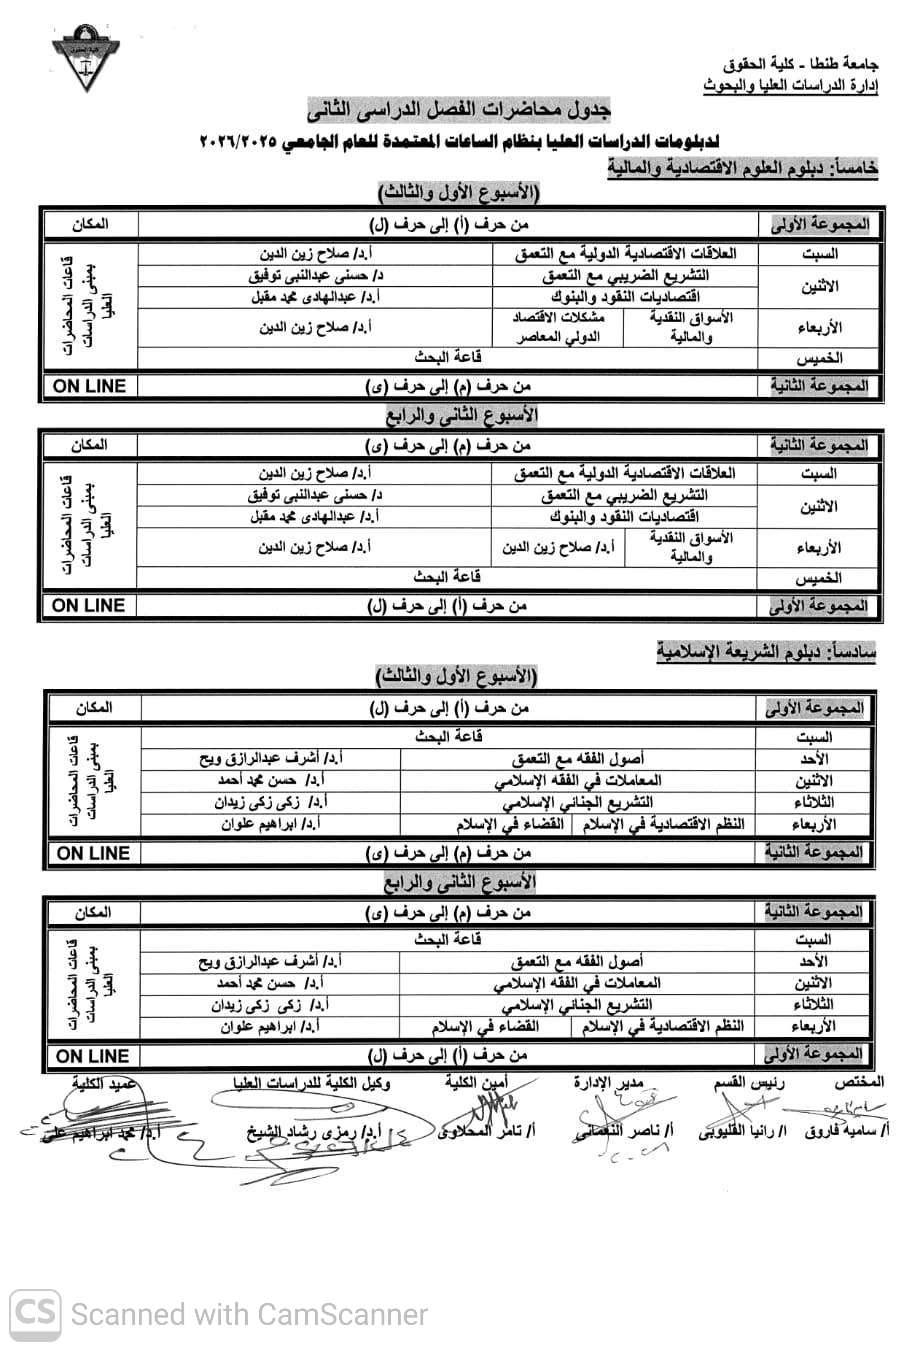 جامعة طنطا - كلية الحقوق
إدارة الدراسات العليا والبحوث
جدول محاضرات الفصل الدراسى الثانى
لدبلومات الدراسات العليا بنظام الساعات المعتمدة للعام الجامعي ٢٠٢٦/٢٠٢٥
خامساً: دبلوم العلوم الاقتصادية والمالية
(الأسبوع الأول والثالث)
المجموعة الأولى من حرف (أ) إلى حرف (ل) المكان
السبت العلاقات الاقتصادية الدولية مع التعمق أ.د/ صلاح زين الدين
قاعات المحاضرات بمبنى الدراسات العليا
الاثنين التشريع الضريبي مع التعمق د/ حسنى عبدالنبى توفيق
اقتصاديات النقود والبنوك أ.د/ عبدالهادى محمد مقبل
الأربعاء الأسواق النقدية والمالية مشكلات الاقتصاد الدولي المعاصر أ.د/ صلاح زين الدين
الخميس قاعة البحث
المجموعة الثانية من حرف (م) إلى حرف (ى) ON LINE
الأسبوع الثانى والرابع
المجموعة الثانية من حرف (م) إلى حرف (ى) المكان
السبت العلاقات الاقتصادية الدولية مع التعمق أ.د/ صلاح زين الدين
قاعات المحاضرات بمبنى الدراسات العليا
الاثنين التشريع الضريبي مع التعمق د/ حسنى عبدالنبى توفيق
اقتصاديات النقود والبنوك أ.د/ عبدالهادى محمد مقبل
الأربعاء الأسواق النقدية والمالية أ.د/ صلاح زين الدين أ.د/ صلاح زين الدين
الخميس قاعة البحث
المجموعة الأولى من حرف (أ) إلى حرف (ل) ON LINE
سادساً: دبلوم الشريعة الإسلامية
(الأسبوع الأول والثالث)
المجموعة الأولى من حرف (أ) إلى حرف (ل) المكان
السبت قاعة البحث
قاعات المحاضرات بمبنى الدراسات العليا
الأحد أصول الفقه مع التعمق أ.د/ أشرف عبدالرازق ويح
الاثنين المعاملات في الفقه الإسلامي أ.د/ حسن محمد أحمد
الثلاثاء التشريع الجنائي الإسلامي أ.د/ زكى زكى زيدان
الأربعاء النظم الاقتصادية في الإسلام القضاء في الإسلام أ.د/ ابراهيم علوان
المجموعة الثانية من حرف (م) إلى حرف (ى) ON LINE
الأسبوع الثانى والرابع
المجموعة الثانية من حرف (م) إلى حرف (ى) المكان
السبت قاعة البحث
قاعات المحاضرات بمبنى الدراسات العليا
الأحد أصول الفقه مع التعمق أ.د/ أشرف عبدالرازق ويح
الاثنين المعاملات في الفقه الإسلامي أ.د/ حسن محمد أحمد
الثلاثاء التشريع الجنائي الإسلامي أ.د/ زكى زكى زيدان
الأربعاء النظم الاقتصادية في الإسلام القضاء في الإسلام أ.د/ ابراهيم علوان
المجموعة الأولى من حرف (أ) إلى حرف (ل) ON LINE
المختص رئيس القسم مدير الإدارة أمين الكلية وكيل الكلية للدراسات العليا عميد الكلية
أ/ سامية فاروق ا/ رانيا القليوبى أ/ ناصر النعمانى أ/ تامر المحلاوى أ.د/ رمزى رشاد الشيخ أ.د/ محمد ابراهيم على
CS Scanned with CamScanner